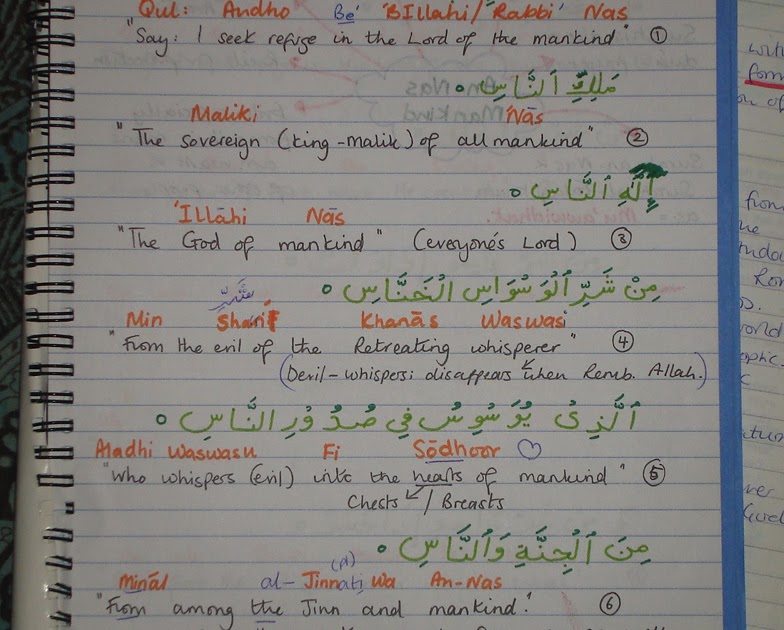 Qul: Andho Be' 'BIllahi/ 'Rabbi' Nas
"Say: I seek refuge in the Lord of the mankind" ①
مَلِكِ ٱلنَّاسِ
Maliki 'Nās
"The sovereign (king-malik) of all mankind" ②
إِلَٰهِ ٱلنَّاسِ
'Illāhi Nās
"The God of mankind" (everyone's Lord) ③
مِنْ شَرِّ ٱلْوَسْوَاسِ ٱلْخَنَّاسِ
شَرِّ
Min Sharri Khanās Waswasi
"From the evil of the Retreating whisperer" ④
(Devil - whispers; disappears when Remb. Allah.)
ٱلَّذِى يُوَسْوِسُ فِي صُدُوْرِ ٱلنَّاسِ
Aladhi Waswasu Fi Sōdhoor ♡
"Who whispers (evil) into the hearts of mankind" ⑤
Chests / Breasts
مِنَ ٱلْجِنَّةِ وَٱلنَّاسِ
Mināl al-Jinnati Wa An-Nas
"From among the Jinn and mankind." ⑥